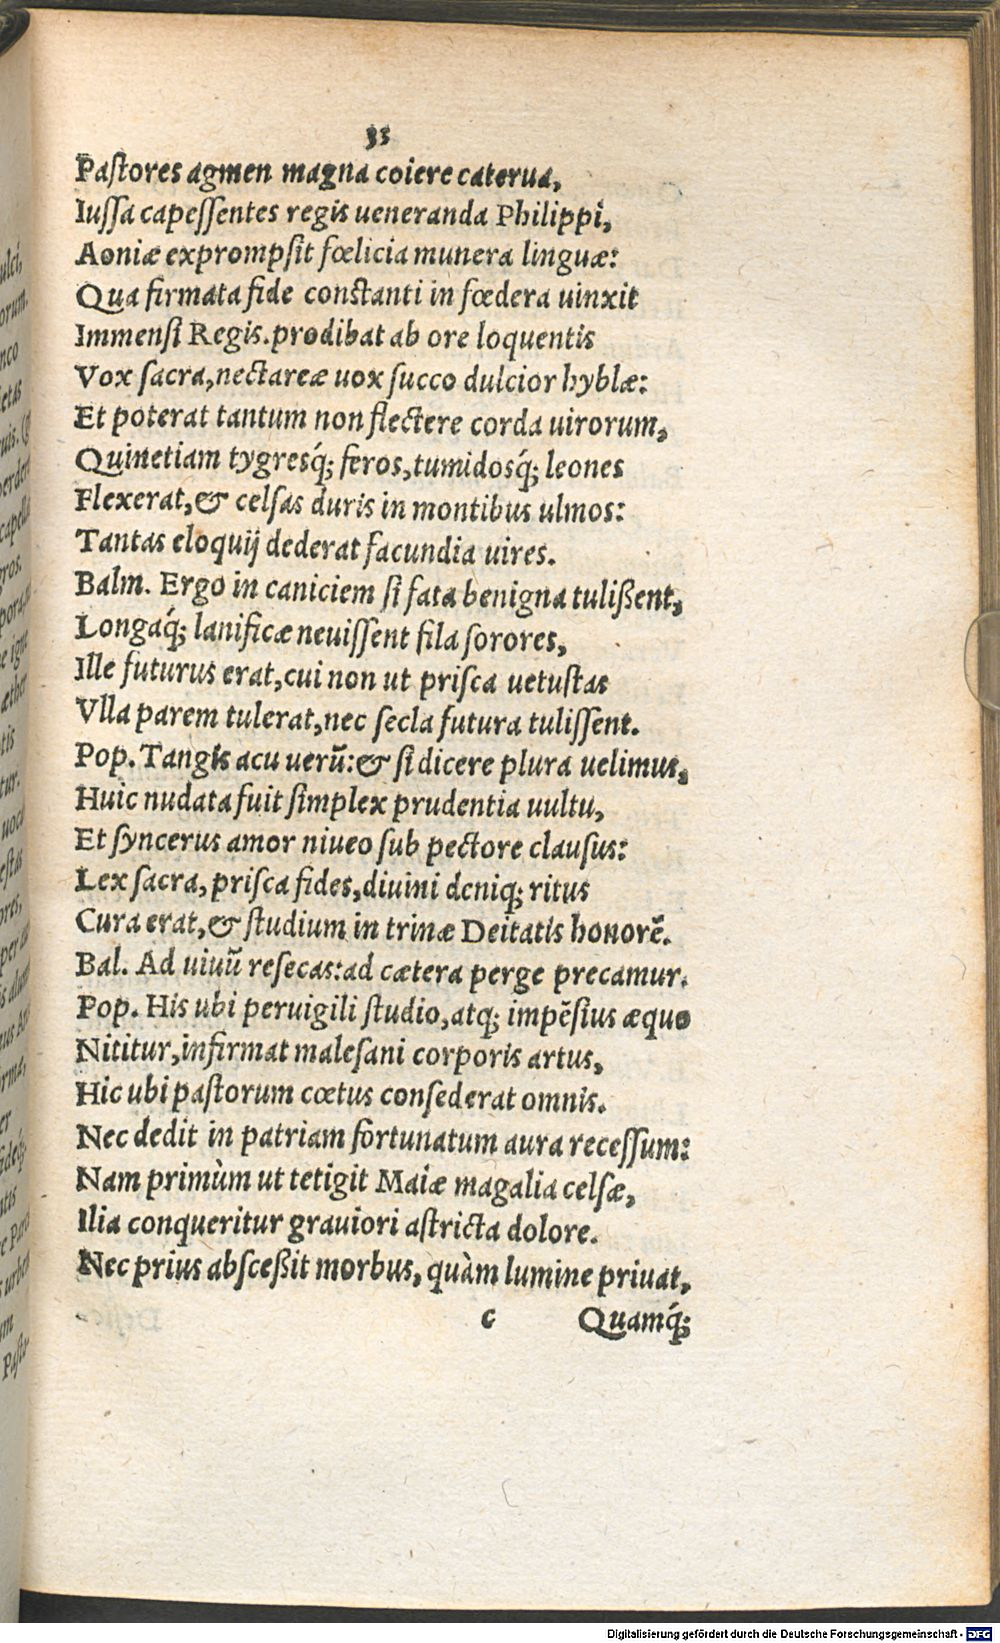 33
Paſtores agmen magna coiere caterua,
Iuſſa capeſſentes regis ueneranda Philippi,
Aoniæ exprompſit fœlicia munera linguæ:
Qua firmata fide conſtanti in fœdera uinxit
Immenſi Regis.prodibat ab ore loquentis
Vox ſacra,nectareæ uox ſucco dulcior hyblæ:
Et poterat tantum non flectere corda uirorum,
Quinetiam tygresq́; feros,tumidosq́; leones
Flexerat,& celſas duris in montibus ulmos:
Tantas eloquij dederat facundia uires.
Balm. Ergo in caniciem ſi fata benigna tulißent,
Longaq́; lanificæ neuiſſent fila ſorores,
Ille futurus erat,cui non ut priſca uetuſtas
Vlla parem tulerat,nec ſecla futura tuliſſent.
Pop. Tangis acu uerū:& ſi dicere plura uelimus,
Huic nudata fuit ſimplex prudentia uultu,
Et ſyncerus amor niueo ſub pectore clauſus:
Lex ſacra, priſca fides,diuini deniq; ritus
Cura erat,& ſtudium in trinæ Deitatis honorē.
Bal. Ad uiuū reſecas:ad cætera perge precamur.
Pop. His ubi peruigili ſtudio,atq; impēſius æquo
Nititur,infirmat maleſani corporis artus,
Hic ubi paſtorum cœtus conſederat omnis.
Nec dedit in patriam fortunatum aura receſſum:
Nam primùm ut tetigit Maiæ magalia celſæ,
Ilia conqueritur grauiori aſtricta dolore.
Nec prius abſceßit morbus, quàm lumine priuat,
c Quamq́;
Digitalisierung gefördert durch die Deutsche Forschungsgemeinschaft - DFG